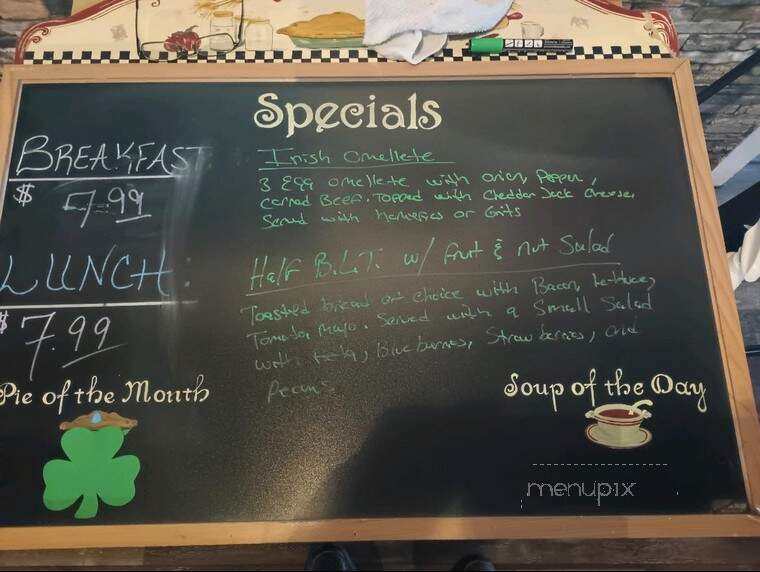 Specials
BREAKFAST:
$ 7.99
Irish Omellete
3 Egg omellete with onion, Pepper,
corned Beef. Topped with Cheddar Jack Cheese.
Served with Homefries or Grits
LUNCH:
$7.99
Half B.L.T. w/ Fruit & Nut Salad
Toasted bread of choice with Bacon, Lettuce,
Tomato, Mayo. Served with a Small Salad
with feta, Blueberries, Strawberries, and
Pecans
Pie of the Month
Soup of the Day
menupix